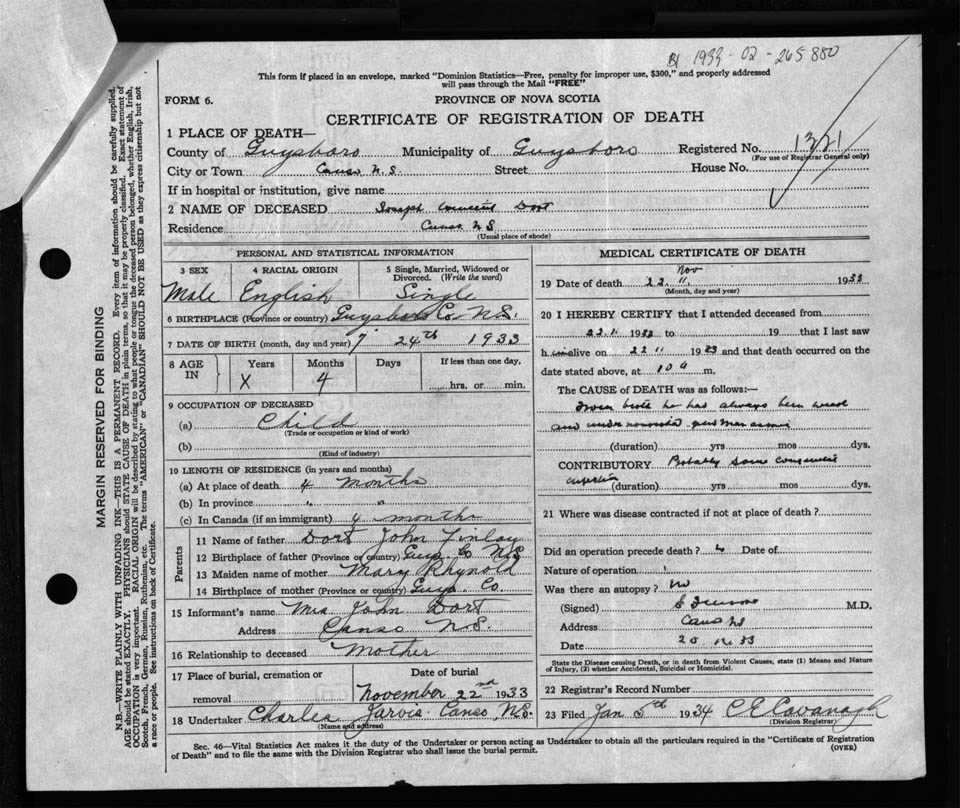 1933 - 02 - 265880
This form if placed in an envelope, marked "Dominion Statistics—Free, penalty for improper use, $300," and properly addressed
will pass through the Mail "FREE"
FORM 6. PROVINCE OF NOVA SCOTIA
CERTIFICATE OF REGISTRATION OF DEATH
1 PLACE OF DEATH—
County of Guysboro Municipality of Guysboro Registered No. 1321
(For use of Registrar General only)
City or Town Canso N.S. Street House No.
If in hospital or institution, give name
2 NAME OF DECEASED Joseph Vincent Dort
Residence Canso N.S.
(Usual place of abode)
PERSONAL AND STATISTICAL INFORMATION
3 SEX 4 RACIAL ORIGIN 5 Single, Married, Widowed or
Divorced. (Write the word)
Male English Single
6 BIRTHPLACE (Province or country) Guysboro Co. N.S.
7 DATE OF BIRTH (month, day and year) 7 24th 1933
8 AGE IN Years Months Days If less than one day,
X 4 hrs. or min.
9 OCCUPATION OF DECEASED
(a) Child
(Trade or occupation or kind of work)
(b)
(Kind of industry)
10 LENGTH OF RESIDENCE (in years and months)
(a) At place of death 4 months
(b) In province " "
(c) In Canada (if an immigrant) 4 months
Parents
11 Name of father Dort John Finlay
12 Birthplace of father (Province or country) Guys Co N.S
13 Maiden name of mother Mary Rhynold
14 Birthplace of mother (Province or country) Guys. Co.
15 Informant's name Mrs John Dort
Address Canso N.S.
16 Relationship to deceased Mother
17 Place of burial, cremation or Date of burial
removal November 22nd 1933
18 Undertaker Charles Jarvis Canso, N.S.
(Name and address)
MEDICAL CERTIFICATE OF DEATH
Nov
19 Date of death 22. 11. 1933
(Month, day and year)
20 I HEREBY CERTIFY that I attended deceased from
22.11 1933 to 19 that I last saw
h im alive on 22 11 1933 and that death occurred on the
date stated above, at 10 a m.
The CAUSE of DEATH was as follows:—
From birth he has always been weak
and under
(duration) yrs mos dys.
CONTRIBUTORY Probably some
(duration) yrs. mos. dys.
21 Where was disease contracted if not at place of death?
Did an operation precede death? Date of
Nature of operation
Was there an autopsy? no
(Signed) M.D.
Address Canso NS
Date
State the Disease causing Death, or in death from Violent Causes, state (1) Means and Nature
of Injury, (2) whether Accidental, Suicidal or Homicidal.
22 Registrar's Record Number
23 Filed Jan 5th 1934 C E Cavanagh
(Division Registrar)
Sec. 46—Vital Statistics Act makes it the duty of the Undertaker or person acting as Undertaker to obtain all the particulars required in the "Certificate of Registration
of Death" and to file the same with the Division Registrar who shall issue the burial permit. (OVER)
MARGIN RESERVED FOR BINDING
N.B.—WRITE PLAINLY WITH UNFADING INK—THIS IS A PERMANENT RECORD. Every item of information should be carefully supplied.
AGE should be stated EXACTLY. PHYSICIANS should STATE CAUSE OF DEATH in plain terms, so that it may be properly classified. Exact statement of
OCCUPATION is very important. RACIAL ORIGIN will be described by stating to what people or tongue the deceased person belonged, whether English, Irish,
Scotch, French, German, Russian, Ruthenian, etc. The terms "AMERICAN" or "CANADIAN" SHOULD NOT BE USED as they express citizenship but not
a race or people. See instructions on back of Certificate.